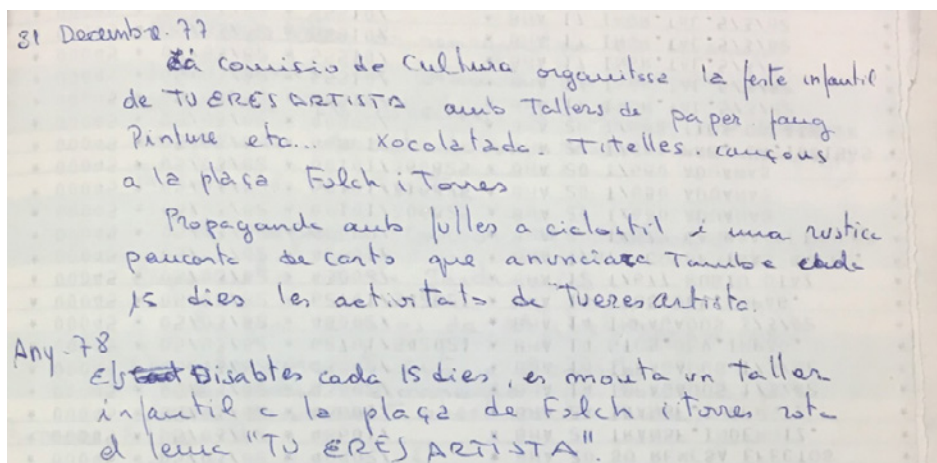 31 Decembre. 77
La comisio de Cultura organitsa la feste infantil
de TU ERES ARTISTA amb Tallers de paper fang
Pinture etc... Xocolatada. Titelles. cançons
a la plaça Folch i Torres
Propaganda amb fulles a ciclostil i una rustica
pancarta de carto que anunciara Tambe cada
15 dies les activitats de Tueres artista.
Any. 78
Els Disabtes cada 15 dies, es monta un taller
infantil a la plaça de Folch i torres sota
el lema "TU ERES ARTISTA".